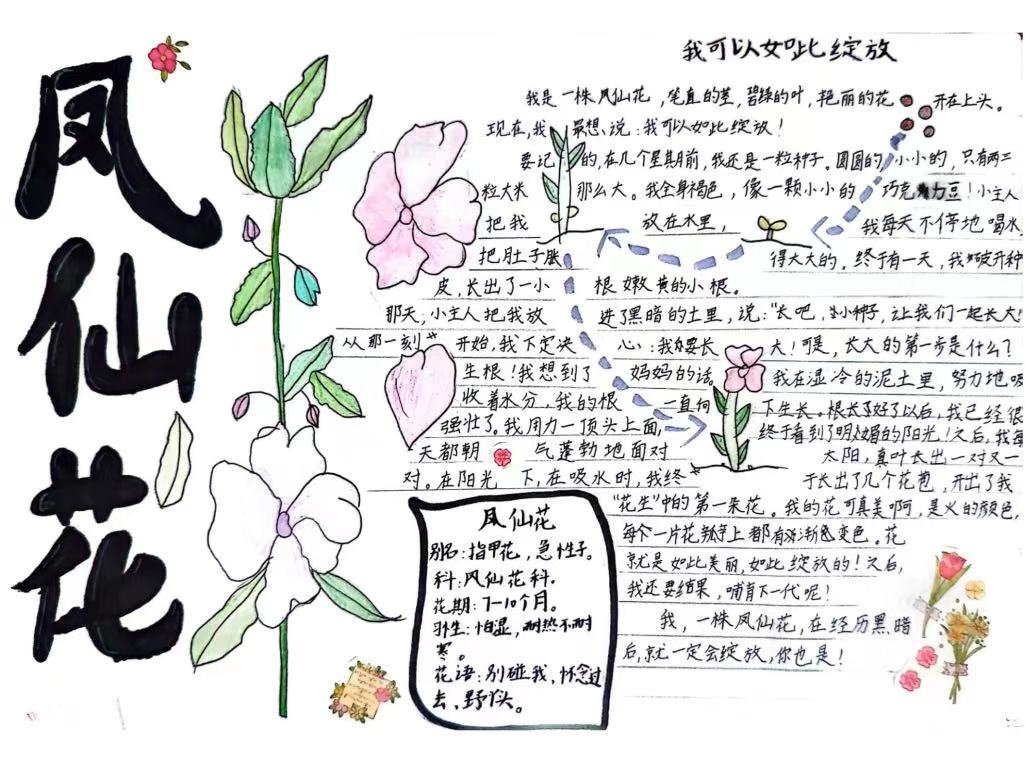 凤仙花
我可以如此绽放
我是一株凤仙花，笔直的茎，碧绿的叶，艳丽的花开在上头。
现在，我最想说：我可以如此绽放！
要记的，在几个星期前，我还是一粒种子。圆圆的小小的，只有两三
粒大米那么大。我全身褐色，像一颗小小的巧克力豆！小主人
把我放在水里，我每天不停地喝水，
把肚子胀得大大的。终于有一天，我破开种
皮，长出了一小根嫩黄的小根。
那天，小主人把我放进了黑暗的土里，说：“长吧，小种子，让我们一起长大！
从那一刻”开始，我下定决心：我要长大！可是，长大的第一步是什么？
生根！我想到了妈妈的话。我在湿冷的泥土里，努力地吸
收着水分。我的根一直向下生长。根长了好了以后，我已经很
强壮了。我用力一顶头上面，终于看到了明媚的阳光！之后，我每
天都朝气蓬勃地面对太阳，真叶长出一对又一
对。在阳光下，在吸水时，我终于长出了几个花苞，开出了我
“花生”中的第一朵花。我的花可真美啊，是火的颜色，
每个一片花瓣上都有渐变色。花
就是如此美丽，如此绽放的！之后，
我还要结果，哺育下一代呢！
我，一株凤仙花，在经历黑暗
后，就一定会绽放，你也是！
凤仙花
别名：指甲花，急性子。
科：凤仙花科。
花期：7-10个月。
习性：怕湿，耐热不耐
寒。
花语：别碰我，怀念过
去，野丫头。